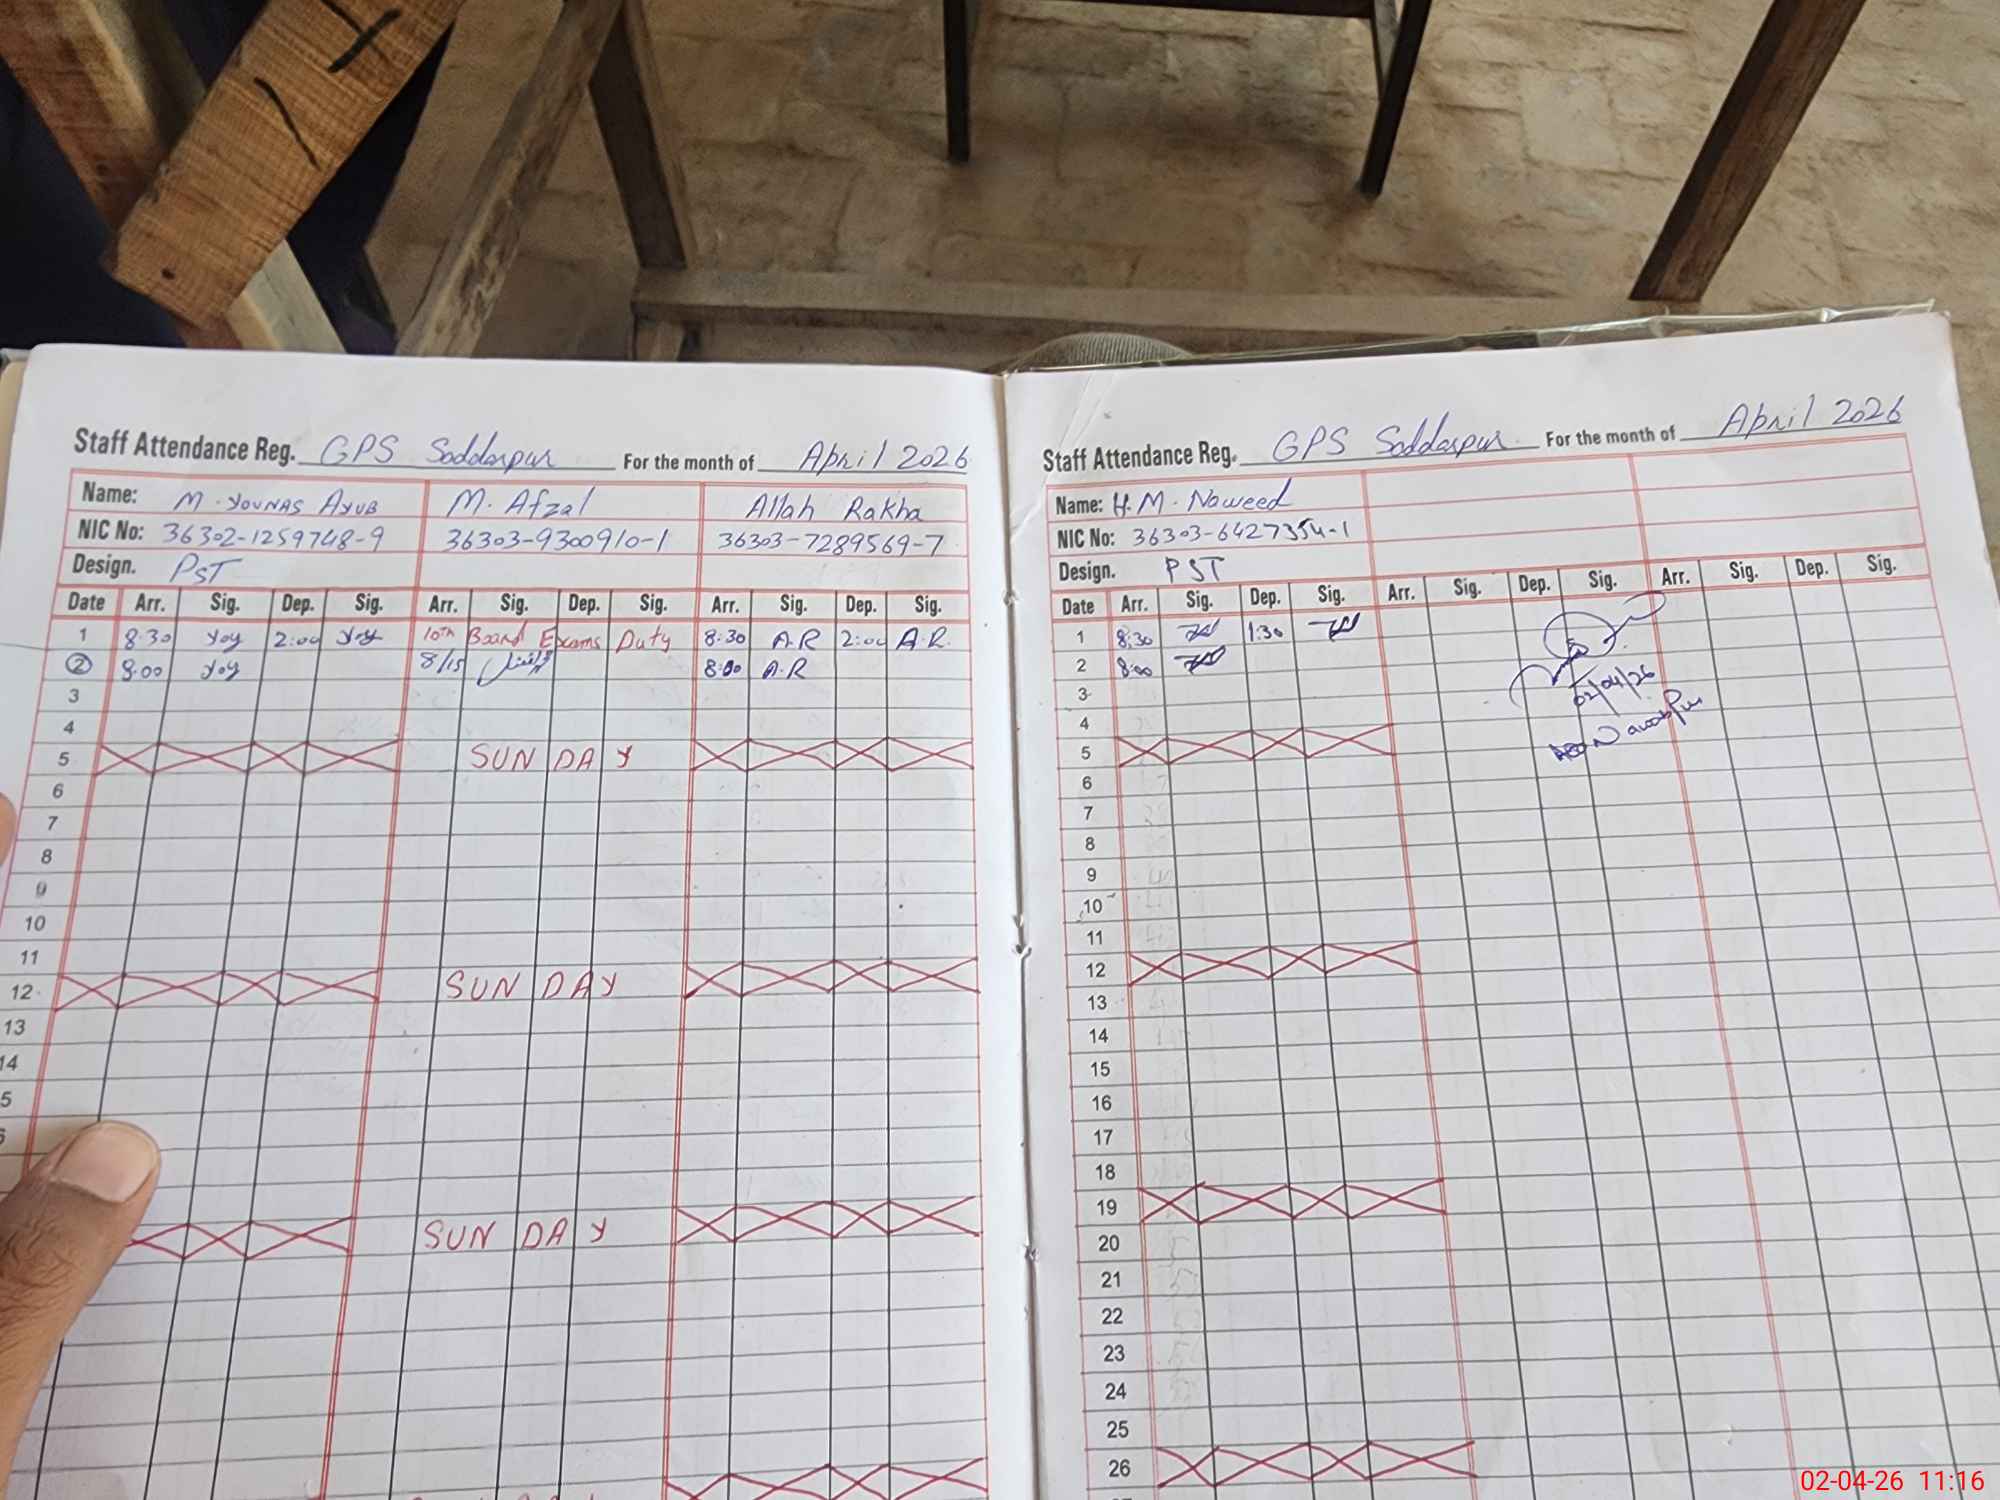 Staff Attendance Reg. GPS Saddarpur For the month of April 2026
Name: M. YOUNAS AYUB M. Afzal Allah Rakha
NIC No: 36302-1259748-9 36303-9300910-1 36303-7289569-7
Design. PST
Date Arr. Sig. Dep. Sig. Arr. Sig. Dep. Sig. Arr. Sig. Dep. Sig.
1 8:30 2:00 10th Board Exams Duty 8:30 A.R 2:00 A.R.
2 8:00 8/15 8:00 A.R
3
4
5 SUNDAY
6
7
8
9
10
11
12 SUNDAY
13
14
5
SUNDAY
Staff Attendance Reg. GPS Saddarpur For the month of April 2026
Name: H.M. Naweed
NIC No: 36303-6427354-1
Design. PST
Date Arr. Sig. Dep. Sig. Arr. Sig. Dep. Sig. Arr. Sig. Dep. Sig.
1 8:30 1:30
2 8:00
02/04/26
3
4
AEO Nawabpur
5
6
7
8
9
10
11
12
13
14
15
16
17
18
19
20
21
22
23
24
25
26
02-04-26 11:16